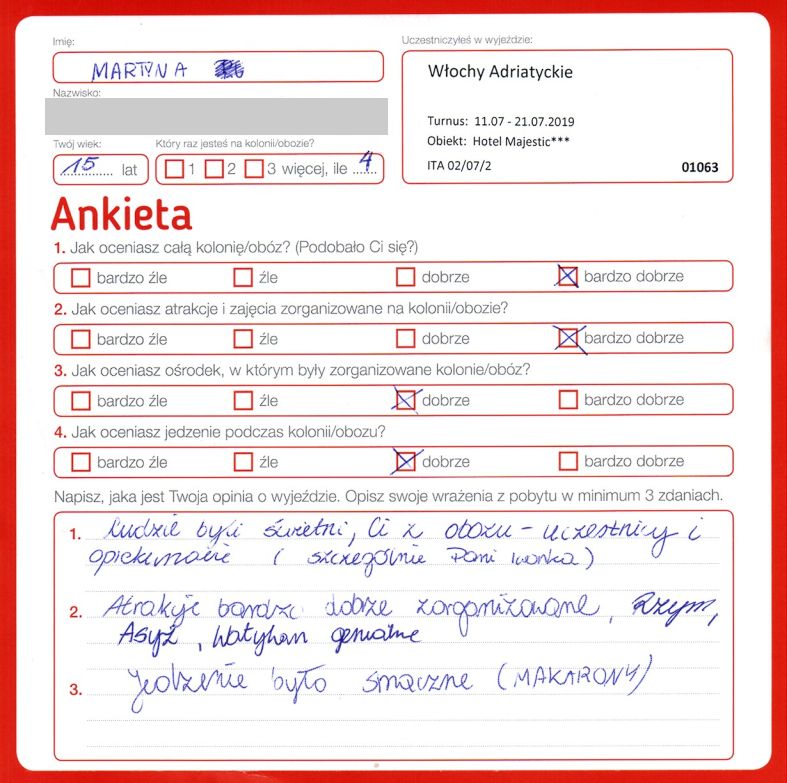 Imię:
MARTYNA
Nazwisko:
Twój wiek:
15 lat
Który raz jesteś na kolonii/obozie?
1 2 3 więcej, ile 4
Uczestniczyłeś w wyjeździe:
Włochy Adriatyckie
Turnus: 11.07 - 21.07.2019
Obiekt: Hotel Majestic***
ITA 02/07/2 01063
Ankieta
1. Jak oceniasz całą kolonię/obóz? (Podobało Ci się?)
bardzo źle źle dobrze bardzo dobrze
2. Jak oceniasz atrakcje i zajęcia zorganizowane na kolonii/obozie?
bardzo źle źle dobrze bardzo dobrze
3. Jak oceniasz ośrodek, w którym były zorganizowane kolonie/obóz?
bardzo źle źle dobrze bardzo dobrze
4. Jak oceniasz jedzenie podczas kolonii/obozu?
bardzo źle źle dobrze bardzo dobrze
Napisz, jaka jest Twoja opinia o wyjeździe. Opisz swoje wrażenia z pobytu w minimum 3 zdaniach.
1. Ludzie byli świetni, Ci z obozu - uczestnicy i
opiekunowie (szczególnie Pani Iwonka)
2. Atrakcje bardzo dobrze zorganizowane, Rzym,
Asyż, Watykan genialne
3. Jedzenie było smaczne (MAKARONY)